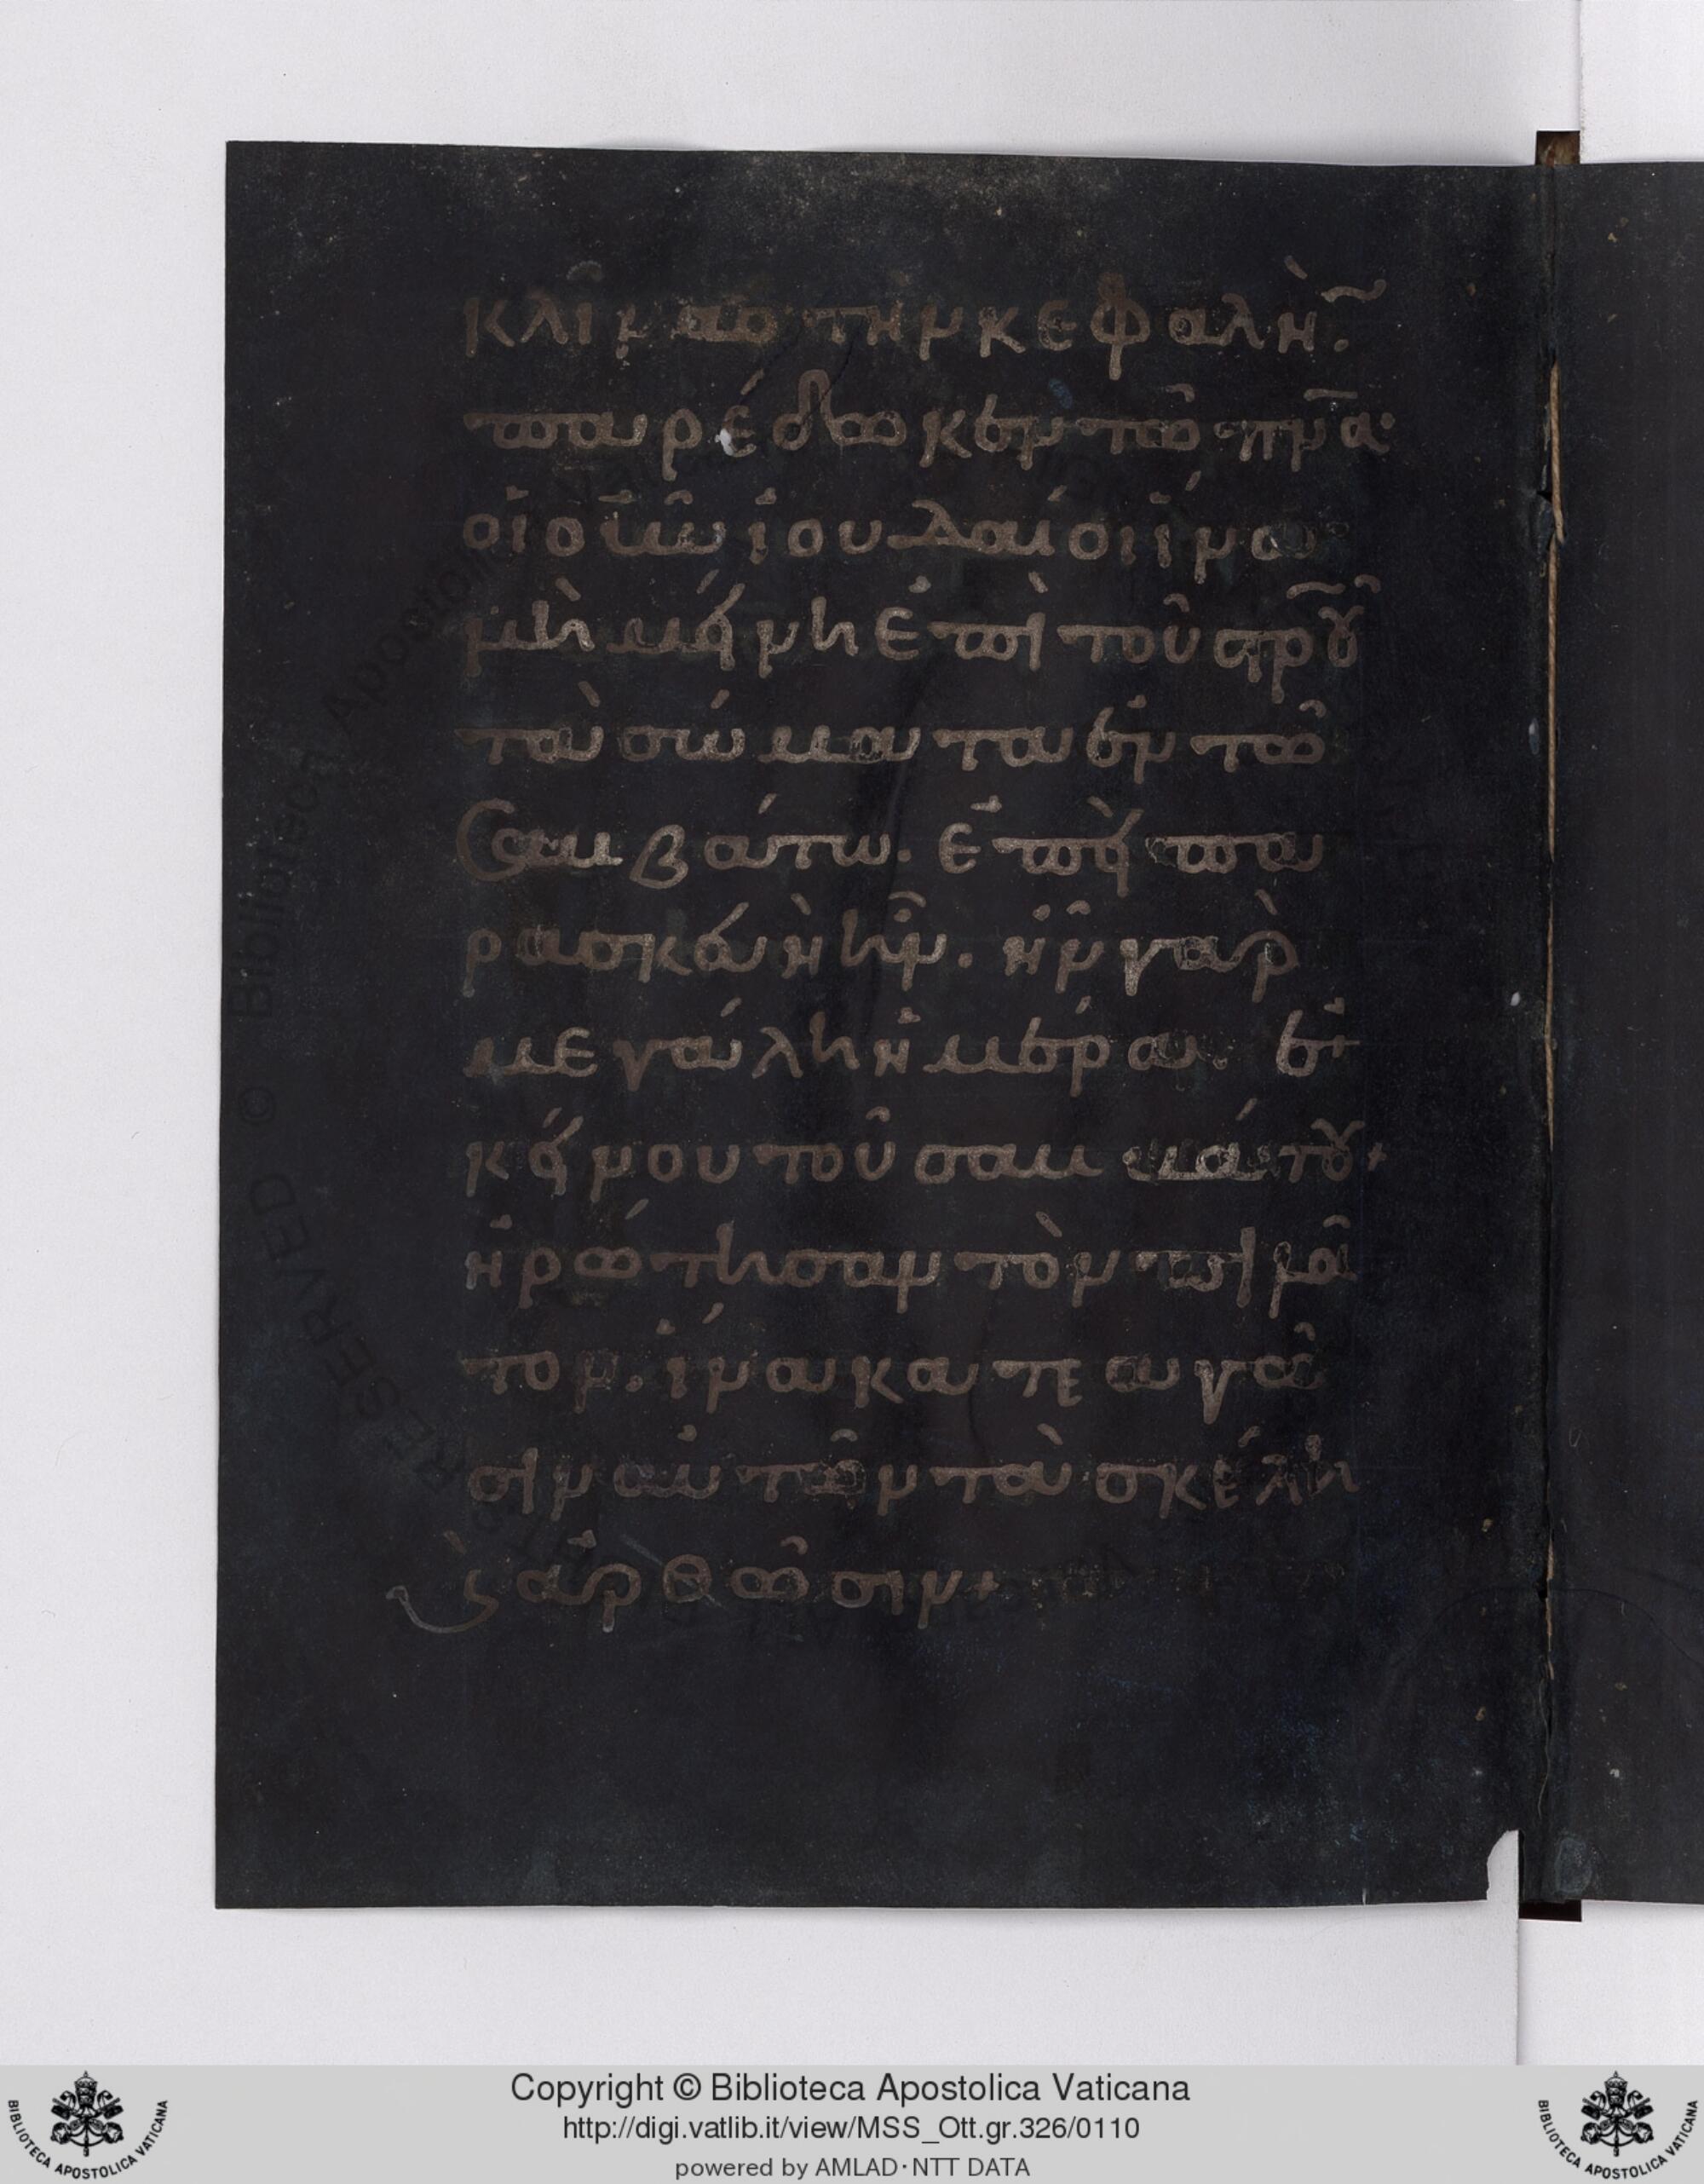 κλίνας τὴν κεφαλὴ̅.
παρέδωκεν τὸ π̅ν̅α̅·
οἱ οὖν ἰουδαῖοι ἵνα
μὴ μείνη ἐπὶ τοῦ σ̅ρ̅ου̅
τὰ σώματα ἐν τῶ
Σαμβάτω. ἐπεὶ πα
ρασκευὴ ἦν. ἦν γὰρ
μεγάλη ἡμέρα. ἐ
κείνου τοῦ σαμβάτου+
ἠρώτησαν τὸν πιλᾶ
τον. ἵνα κατεαγῶ
σιν αὐτῶν τὰ σκέλη
ϗ ἀρθῶσιν+
Copyright © Biblioteca Apostolica Vaticana
http://digi.vatlib.it/view/MSS_Ott.gr.326/0110
powered by AMLAD·NTT DATA
BIBLIOTECA APOSTOLICA VATICANA
BIBLIOTECA APOSTOLICA VATICANA